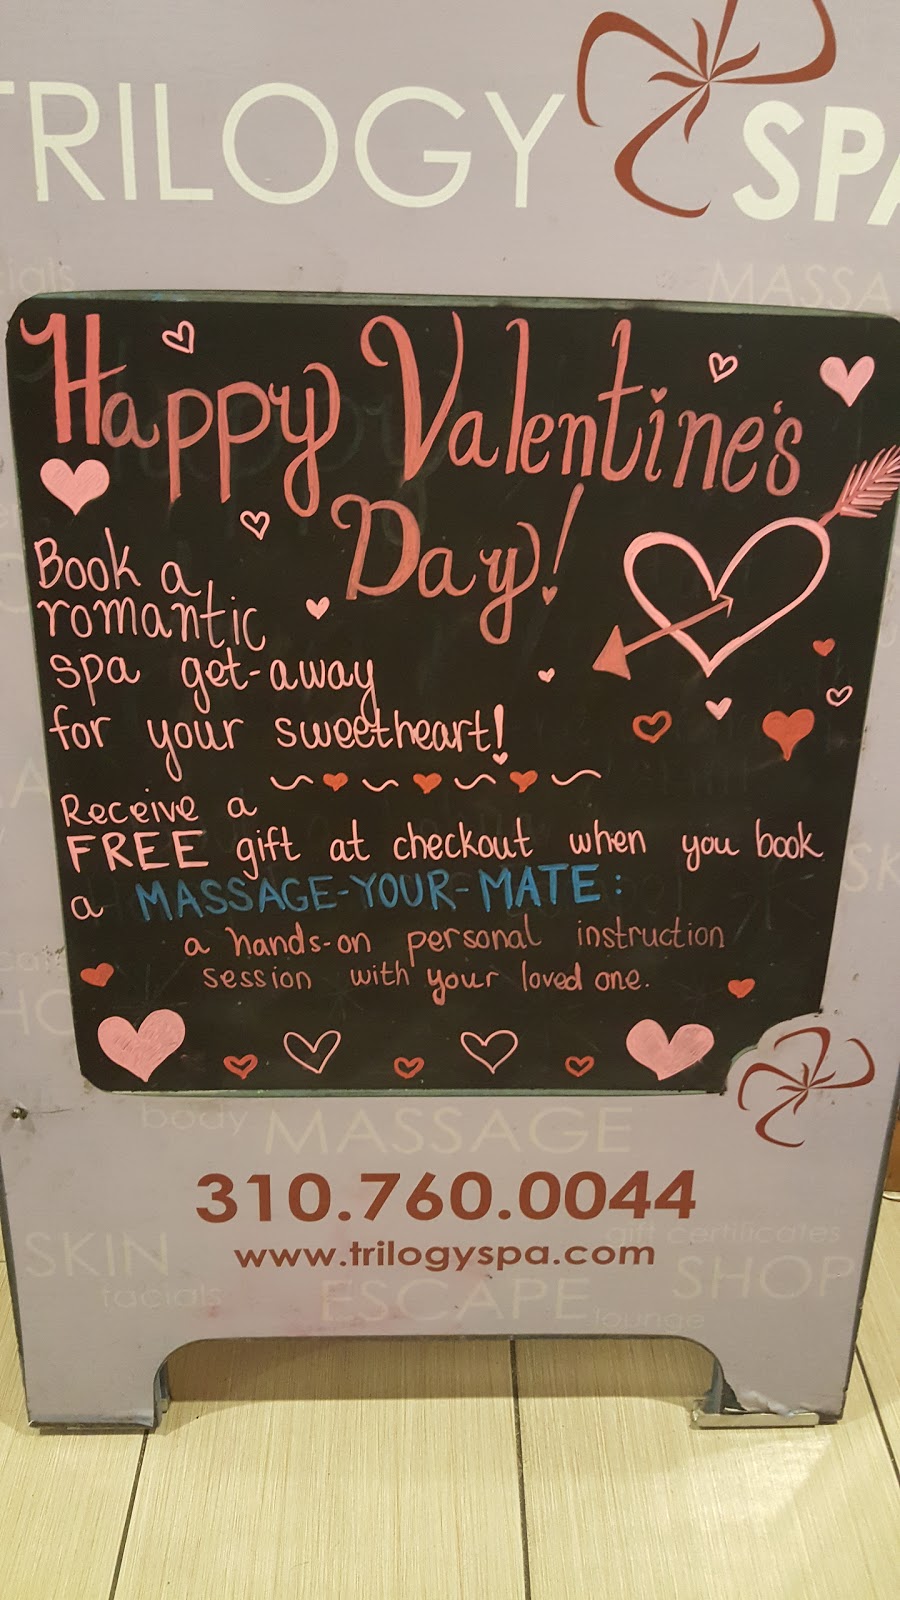 TRILOGY SPA
MASSA
Happy Valentine's
Day!
Book a
romantic
spa get-away
for your sweetheart!
Receive a
FREE gift at checkout when you book
a MASSAGE-YOUR-MATE:
a hands-on personal instruction
session with your loved one.
body MASSAGE
310.760.0044
gift certificates
www.trilogyspa.com
SKIN
SHOP
facials
ESCAPE
lounge